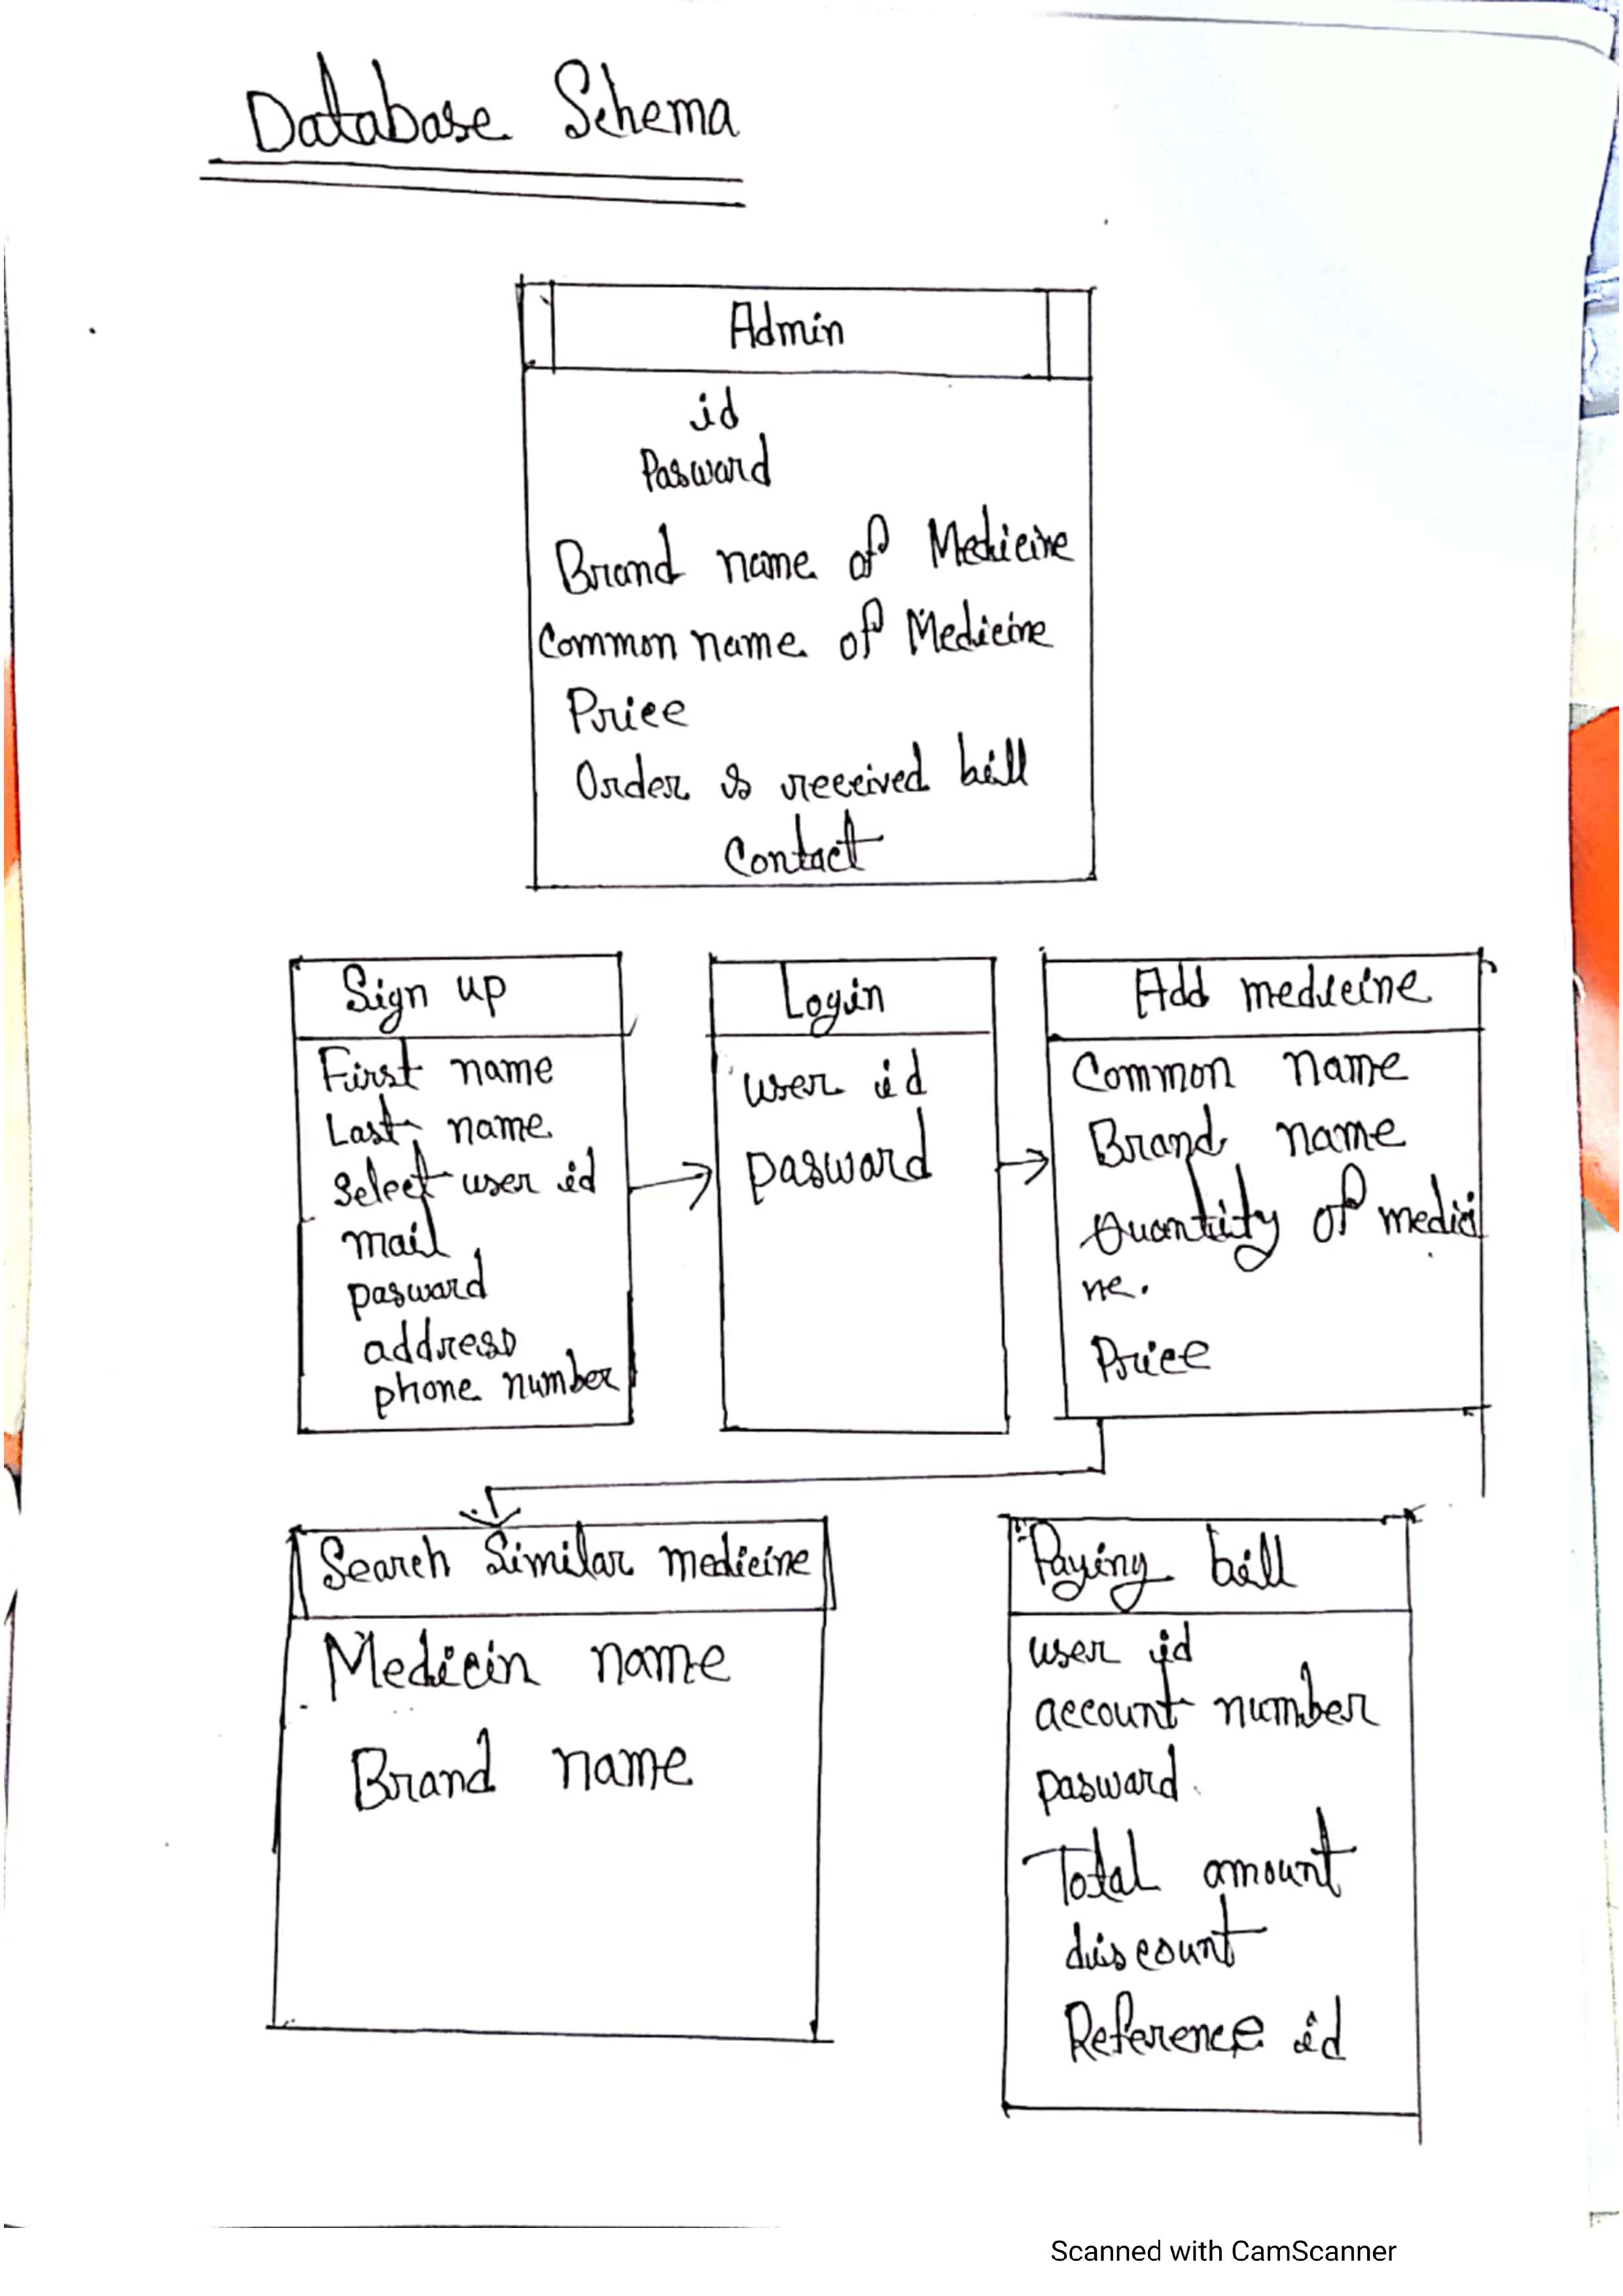 Database Schema
Admin
id
Pasward
Brand name of Medicine
Common name of Medicine
Price
Order is received bill
Contact
Sign up
First name
Last name
Select user id
mail
pasward
address
phone number
Login
user id
pasward
Add medicine
Common name
Brand name
Quantity of medici
ne.
Price
Search Similar medicine
Medicin name
Brand name
Paying bill
user id
account number
pasward
Total amount
discount
Reference id
Scanned with CamScanner